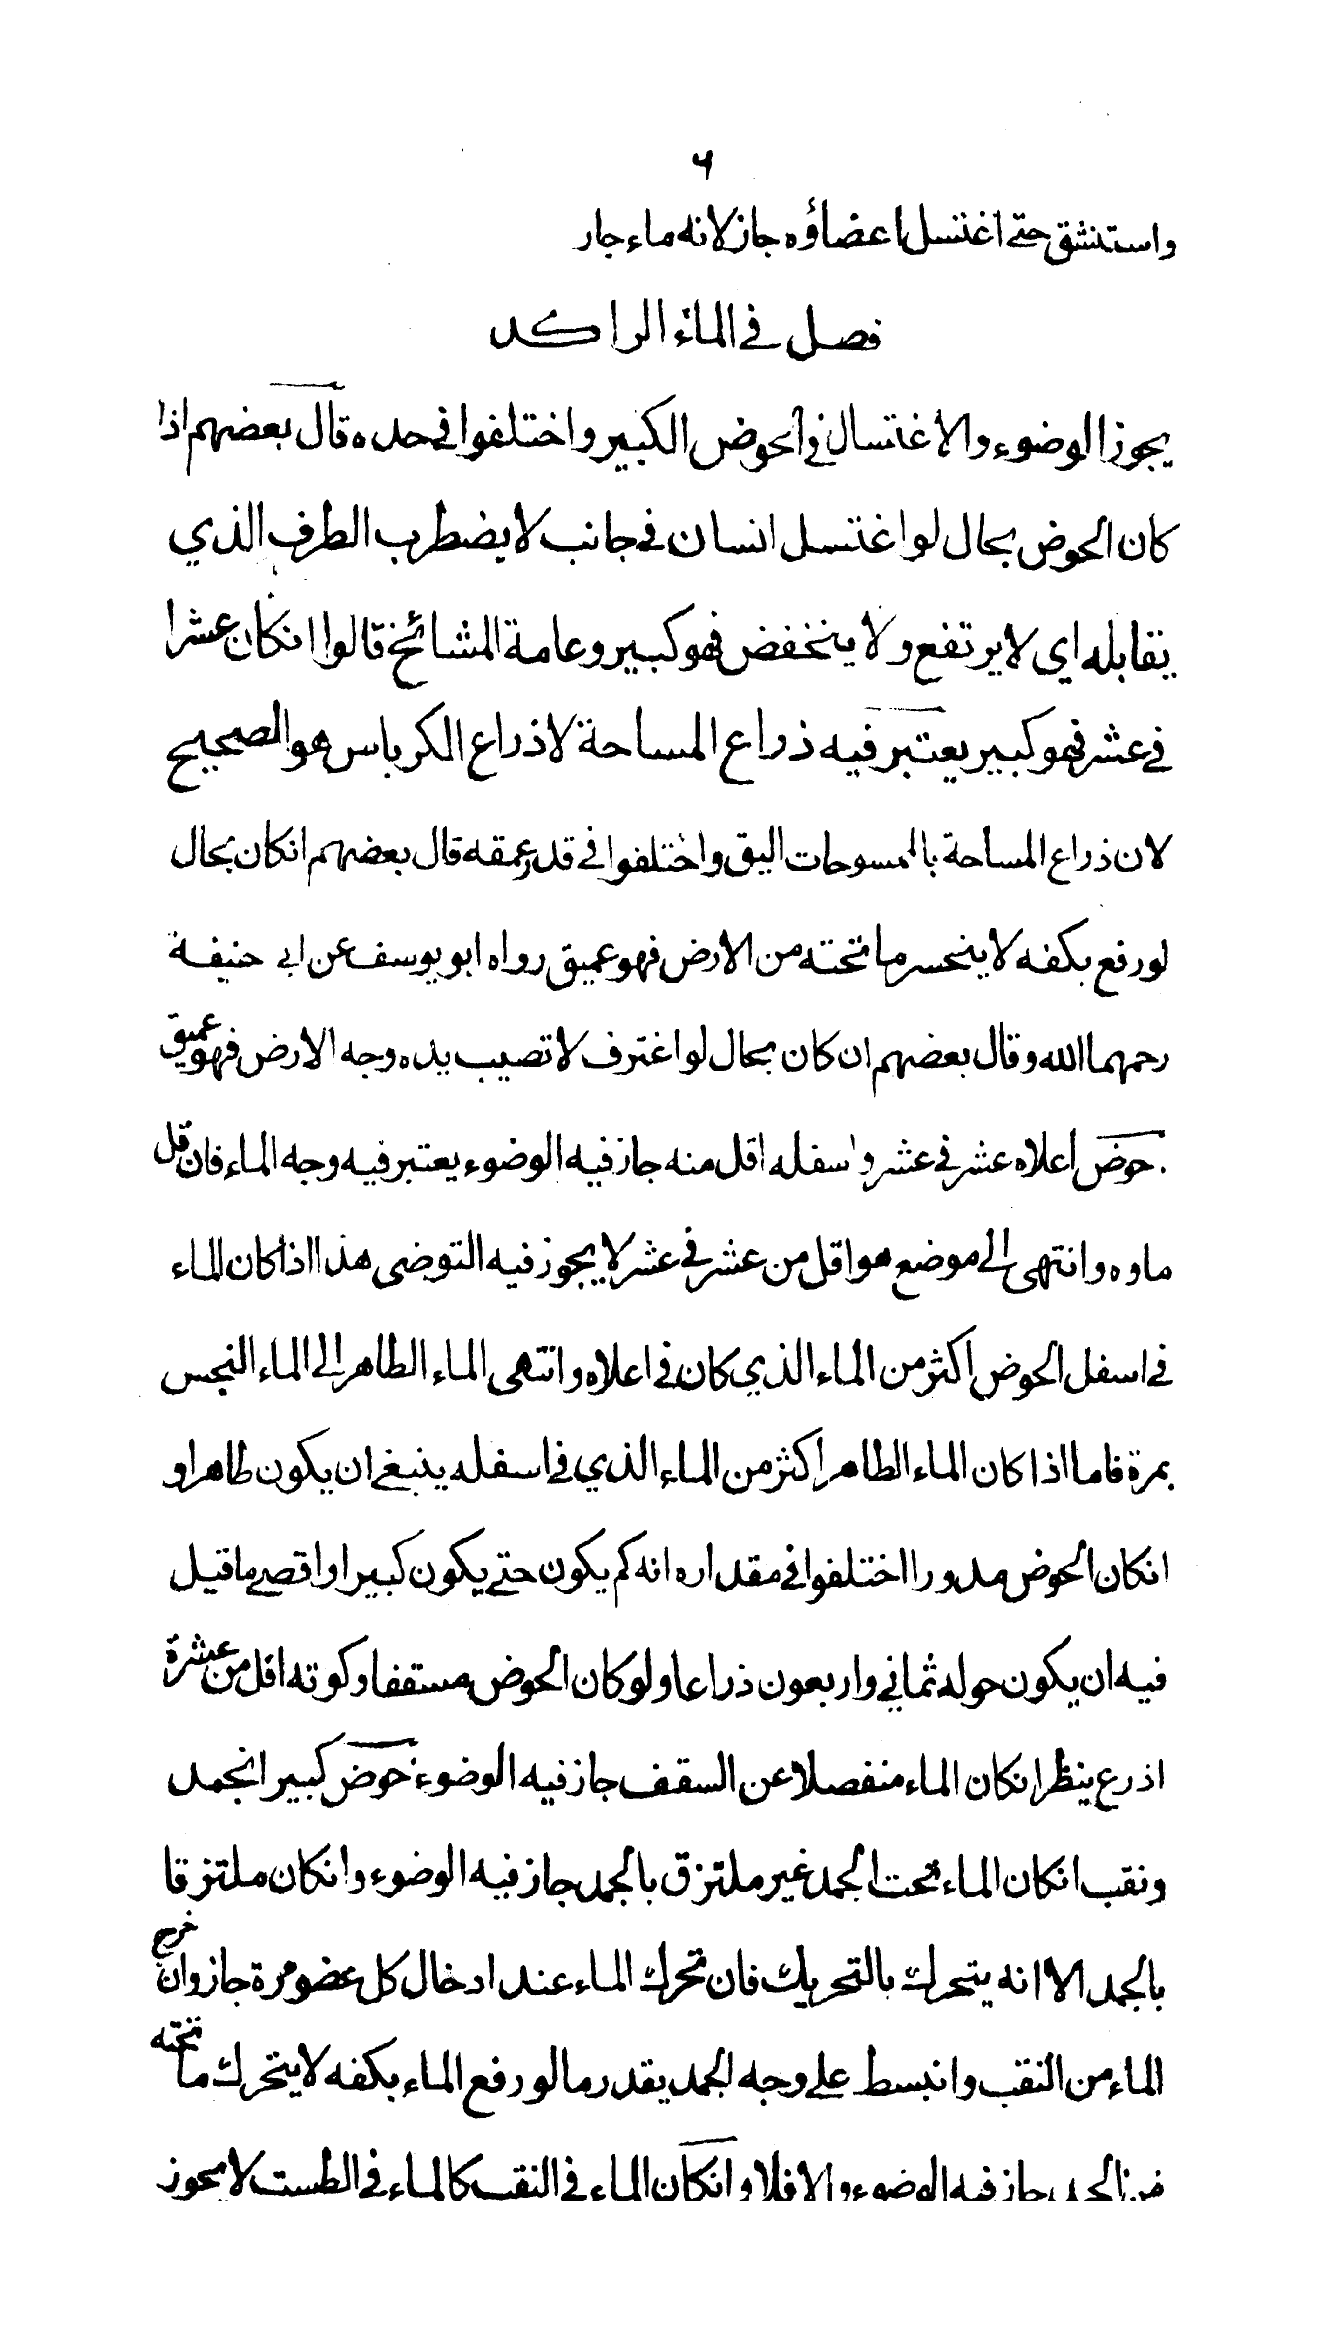 ٦
واستنشق حتى اغتسل اعضاؤه جاز لانه ماء جار
فصل في الماء الراكد
يجوز الوضوء والاغتسال في الحوض الكبير واختلفوا في حده قال بعضهم اذا
كان الحوض بحال لو اغتسل انسان في جانب لا يضطرب الطرف الذي
يقابله اي لا يرتفع ولا ينخفض فهو كبير وعامة المشائخ قالوا انكان عشرا
في عشر فهو كبير يعتبر فيه ذراع المساحة لا ذراع الكرباس هو الصحيح
لان ذراع المساحة بالممسوحات اليق واختلفوا في قدر عمقه قال بعضهم انكان بحال
لو رفع بكفه لا ينحسر ما تحته من الارض فهو عميق رواه ابو يوسف عن ابي حنيفة
رحمهما الله وقال بعضهم ان كان بحال لو اغترف لا تصيب يده وجه الارض فهو عميق
حوض اعلاه عشر في عشر واسفله اقل منه جاز فيه الوضوء يعتبر فيه وجه الماء فان قل
ماوه وانتهى الى موضع هو اقل من عشر في عشر لا يجوز فيه التوضي هذا اذا كان الماء
في اسفل الحوض اكثر من الماء الذي كان في اعلاه وانتهى الماء الطاهر الى الماء النجس
بمرة فاما اذا كان الماء الطاهر اكثر من الماء الذي في اسفله ينبغي ان يكون طاهرا و
انكان الحوض مدورا اختلفوا في مقداره انه كم يكون حتى يكون كبيرا واقصى ما قيل
فيه ان يكون حوله ثماني واربعون ذراعا ولو كان الحوض مسقفا وكوته اقل من عشرة
اذرع ينظر انكان الماء منفصلا عن السقف جاز فيه الوضوء حوض كبير انجمد
ونقب انكان الماء تحت الجمد غير ملتزق بالجمد جاز فيه الوضوء وانكان ملتزقا
بالجمد الا انه يتحرك بالتحريك فان تحرك الماء عند ادخال كل عضو مرة جاز وان خرج
الماء من النقب وانبسط على وجه الجمد بقدر ما لو رفع الماء بكفه لا يتحرك ما تحته
من الجمد جاز فيه الوضوء والا فلا وانكان الماء في النقب كالماء في الطست لا يجوز